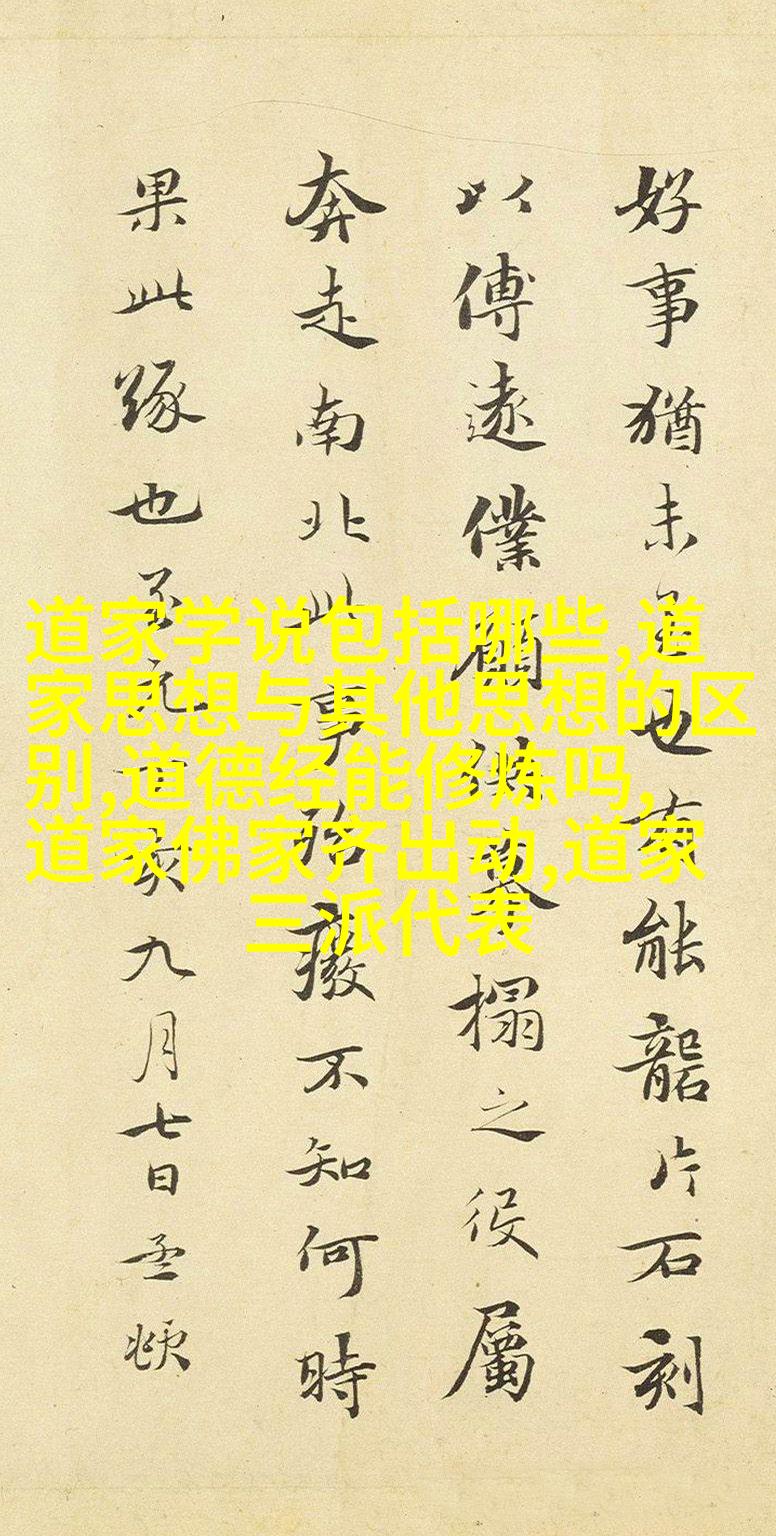 好事猶未足也有能礱片石刻
以傳遠僕願供摹搨之役屬
奔走南北此事殆癈不知何時
果此緣也至元丁亥九月七日孟頫
道家学说包括哪些,道
家思想与其他思想的区
别,道德经能修炼吗,
道家佛家齐出动,道家
三派代表